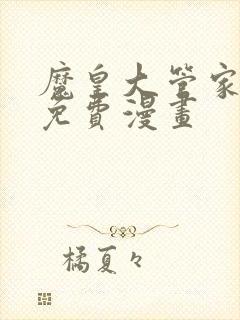 魔皇大管家
免費漫畫
橘夏々